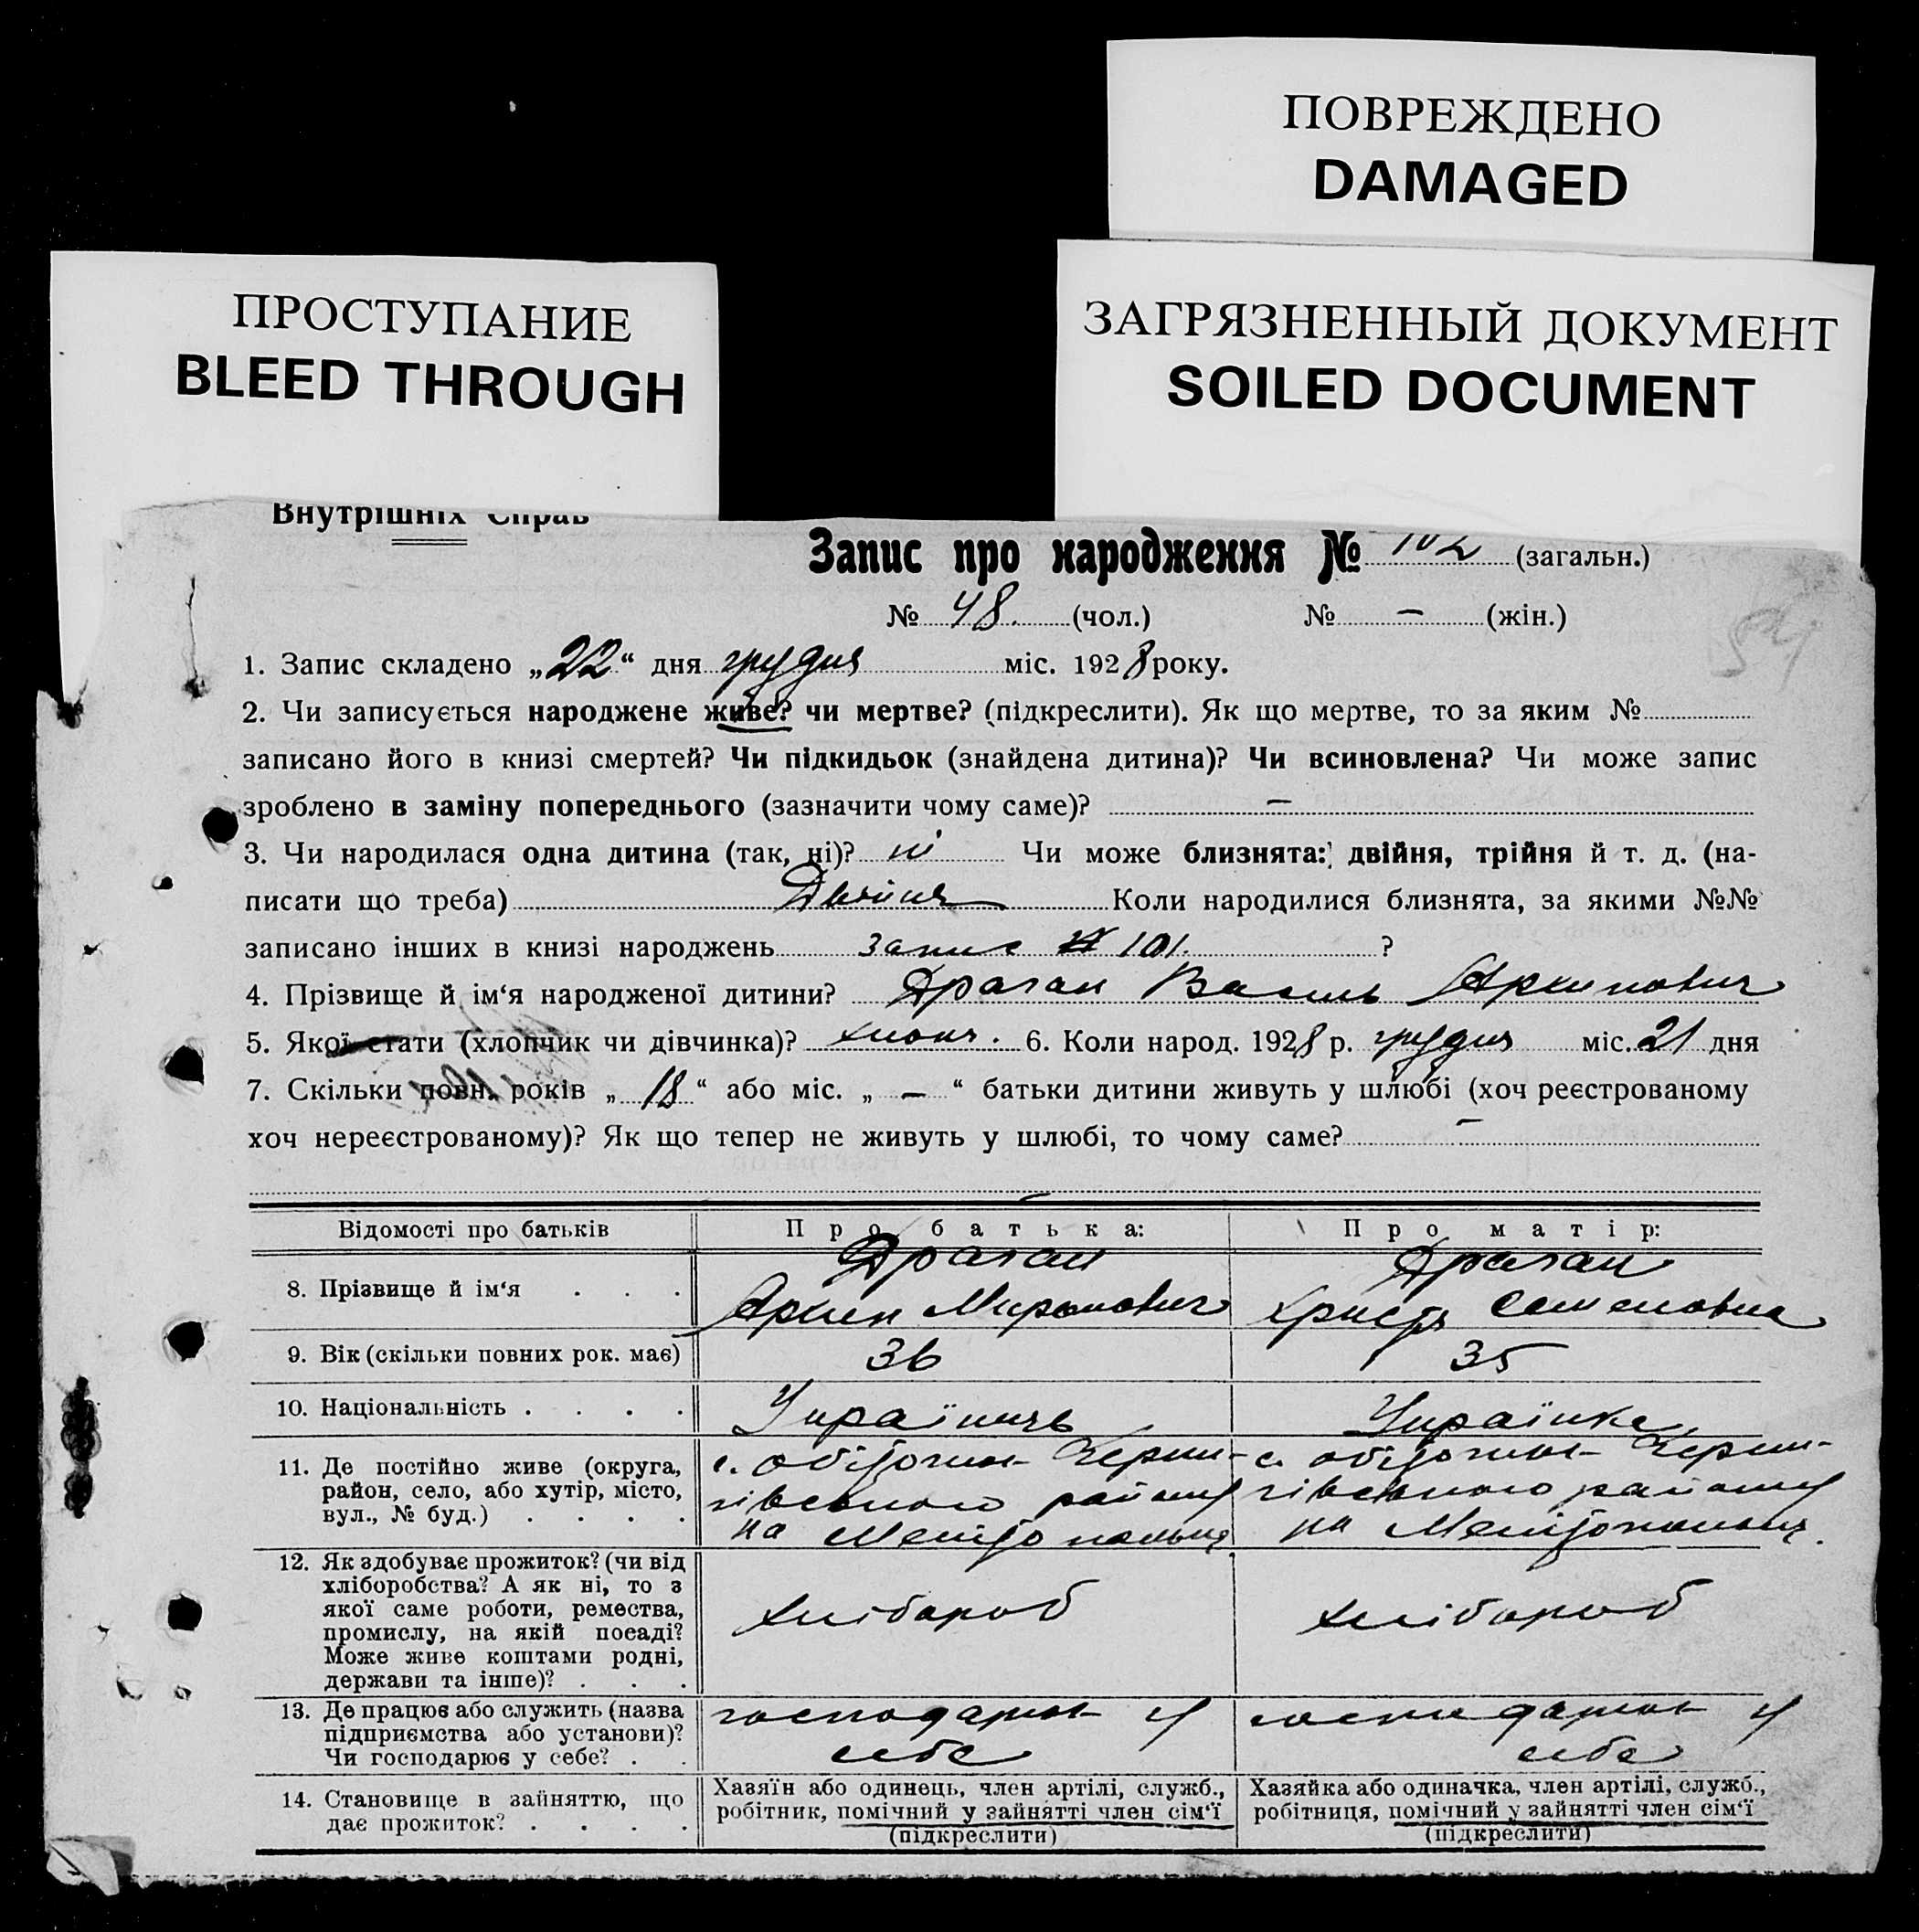 ПОВРЕЖДЕНО
DAMAGED
ПРОСТУПАНИЕ
BLEED THROUGH
ЗАГРЯЗНЕННЫЙ ДОКУМЕНТ
SOILED DOCUMENT
Внутрішніх Справ
Запис про народження № 102 (загальн.)
№ 48. (чол.) № — (жін.)
54
1. Запис складено „22“ дня грудня міс. 1928 року.
2. Чи записується народжене живе? чи мертве? (підкреслити). Як що мертве, то за яким №
записано його в книзі смертей? Чи підкидьок (знайдена дитина)? Чи всиновлена? Чи може запис
зроблено в заміну попереднього (зазначити чому саме)? —
3. Чи народилася одна дитина (так, ні)? ні Чи може близнята: двійня, трійня й т. д. (на-
писати що треба) Двійня Коли народилися близнята, за якими №№
записано інших в книзі народжень запис № 101. ?
4. Прізвище й ім‘я народженої дитини? Драган Василь Архипович
5. Якої стати (хлопчик чи дівчинка)? хлопч. 6. Коли народ. 1928 р. грудня міс. 21 дня
7. Скільки повн. років „18“ або міс. „—“ батьки дитини живуть у шлюбі (хоч реєстрованому
хоч нереєстрованому)? Як що тепер не живуть у шлюбі, то чому саме? —
Відомості про батьків Про батька: Про матір:
8. Прізвище й ім‘я . . . Драган Драган
Архип Миронович Христя Семеновна
9. Вік (скільки повних рок. має) 36 35
10. Національність . . . . Українець Українка
11. Де постійно живе (округа, район, село, або хутір, місто, вул., № буд.) . . . .
с. Обіточне Черни-
гівського району
на Мелітопольщ.
с. Обіточне Черни-
гівського району
на Мелітопольщ.
12. Як здобуває прожиток? (чи від
хліборобства? А як ні, то з
якої саме роботи, ремества,
промислу, на якій посаді?
Може живе коштами родні,
держави та інше)? . . .
хлібороб хлібороб
13. Де працює або служить (назва
підприємства або установи)?
Чи господарює у себе? . .
господарює у
себе
господарює у
себе
14. Становище в зайняттю, що
дає прожиток? . . . .
Хазяїн або одинець, член артілі, служб.,
робітник, помічний у зайнятті член сім‘ї
(підкреслити)
Хазяйка або одиначка, член артілі, служб.,
робітниця, помічний у зайнятті член сім‘ї
(підкреслити)